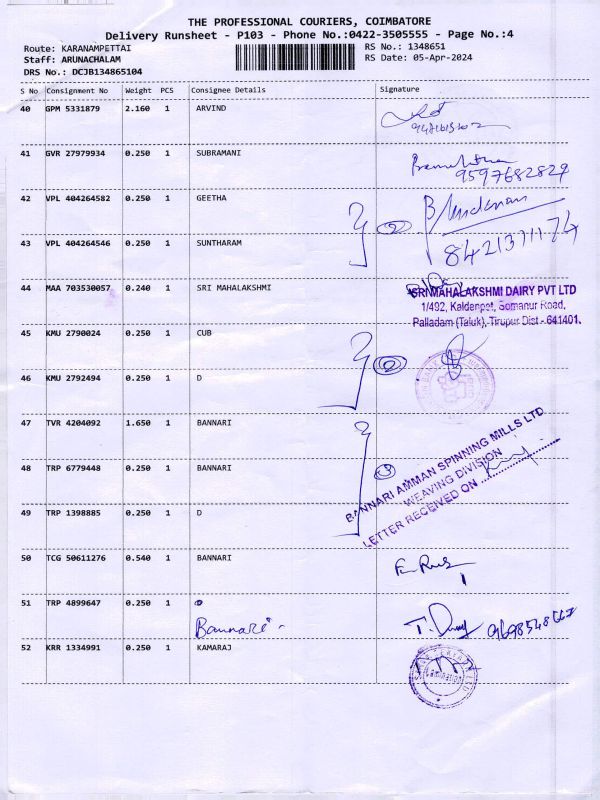 THE PROFESSIONAL COURIERS, COIMBATORE
Delivery Runsheet - P103 - Phone No.:0422-3505555 - Page No.:4
Route: KARANAMPETTAI
Staff: ARUNACHALAM
DRS No.: DCJB134865104
RS No.: 1348651
RS Date: 05-Apr-2024
S No Consignment No Weight PCS Consignee Details Signature
40 GPM 5331879 2.160 1 ARVIND
41 GVR 27979934 0.250 1 SUBRAMANI
9597682829
42 VPL 404264582 0.250 1 GEETHA
43 VPL 404264546 0.250 1 SUNTHARAM
8421371174
44 MAA 703530057 0.240 1 SRI MAHALAKSHMI
SRI MAHALAKSHMI DAIRY PVT LTD
1/492, Kaldenpet, Somanur Road,
Palladam (Taluk), Tirupur Dist - 641401.
45 KMU 2790024 0.250 1 CUB
46 KMU 2792494 0.250 1 D
47 TVR 4204092 1.650 1 BANNARI
48 TRP 6779448 0.250 1 BANNARI
49 TRP 1398885 0.250 1 D
BANNARI AMMAN SPINNING MILLS LTD
WEAVING DIVISION
LETTER RECEIVED ON
50 TCG 50611276 0.540 1 BANNARI
51 TRP 4899647 0.250 1
Bannari -
52 KRR 1334991 0.250 1 KAMARAJ